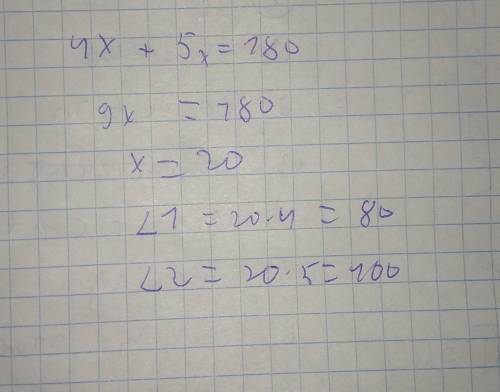 4x + 5x = 180
9x = 180
x = 20
∠1 = 20·4 = 80
∠2 = 20·5 = 100